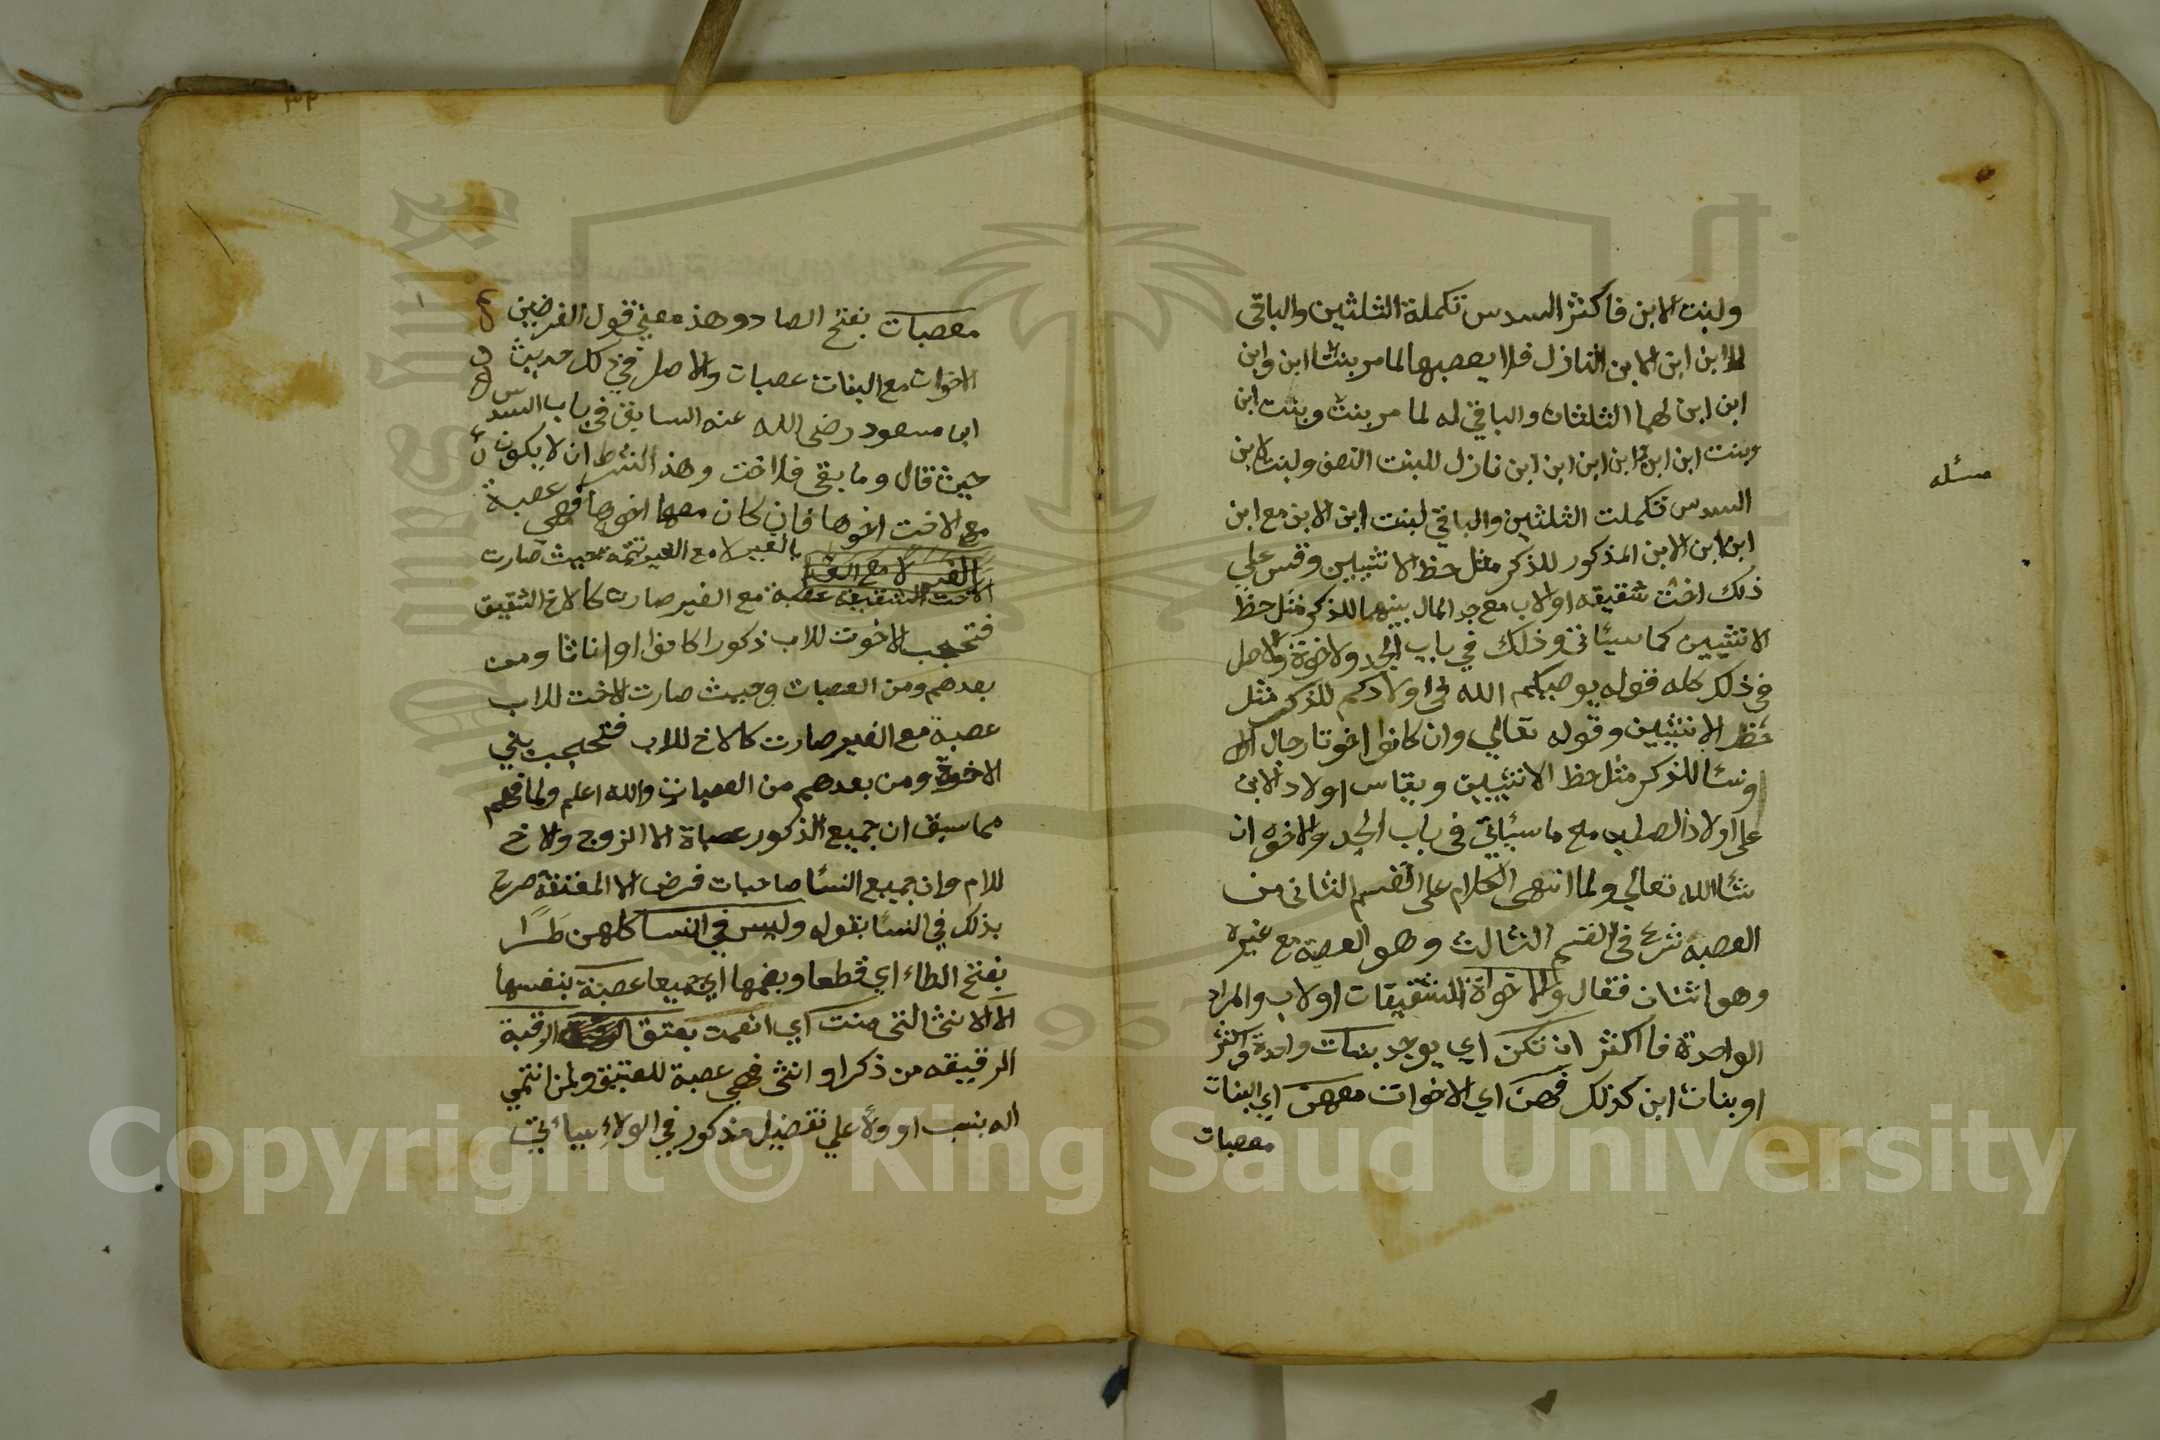 ولبنت الابن فاكثر السدس تكملة الثلثين والباقى
لابن ابن الابن النازل فلا يعصبها لما مر بنتا ابن وابن
ابن ابن لهما الثلثان والباقي له لما مر بنت وبنت ابن
وبنت ابن ابن وابن ابن ابن ابن نازل للبنت النصف ولبنت الابن
مسئله
السدس تكملت الثلثين والباقي لبنت ابن الابن مع ابن
ابن ابن الابن المذكور للذكر مثل حظ الانثيين وقس علي
ذلك اخت شقيقه او لاب مع جد المال بينهما للذكر مثل حظ
الانثيين كما سيئاتي وذلك في باب الجد ولاخوة والاصل
في ذلك كله قوله يوصيكم الله في اولادكم للذكر مثل
حظ الانثيين وقوله تعالي وان كانوا اخوتا رجال
ونسئا للذكر مثل حظ الانثيين ويقاس اولاد الابن
على اولاد الصلب مع ما سيئاتي في باب الجد والاخوه ان
شئا الله تعالي ولما انتهى الكلام على القسم الثاني من
العصبة شرع في القسم الثالث وهو العصبة مع غيره
وهو اثنان فقال والاخواة الشقيقات او لاب والمراد
الواحدة فاكثر ان تكن اي يوجد بنات واحدة فاكثر
او بنات ابن كذلك فهن اي الاخوات معهن اي البنات
معصبات
٣٢
معصبات بفتح الصاد وهذ معني قول الفرضيين
الاخوات مع البنات عصبات والاصل في ذلك حديث
ابن مسعود رضى الله عنه السابق في باب السدس
حيث قال وما بقى فلاخت وهذ الشرط ان لا يكون
مع الاخت اخوها فان كان معها اخوها فهي عصبة
بالغير لا مع الغير تتمه حيث صارت
الغير لا مع الغير
الاخت الشقيقة عصبة مع الغير صارت كالاخ الشقيق
فتحجب الاخوت للاب ذكورا كانوا او اناثا ومن
بعدهم ومن العصبات وحيث صارت الاخت للاب
عصبة مع الغير صارت كالاخ للاب فتحجب بني
الاخوة ومن بعدهم من العصبات والله اعلم ولما فهم
مما سبق ان جميع الذكور عصباة الا الزوج ولاخ
للام وان جميع النسئا صاحبات فرض الا المعتقة صرح
بذلك في النسئا بقوله وليس في النسا كلهن طَرًا
بفتح الطاء اي قطعا وبضمها اي جميعا عصبة بنفسها
الا الانثا التى منت اي انعمت بعتق الرقبة
الرقيقه من ذكر او انثى فهي عصبة للعتيق ولمن انتمي
اله بنسب او ولأ علي تفضيل مذكور في الولاء سيائتي